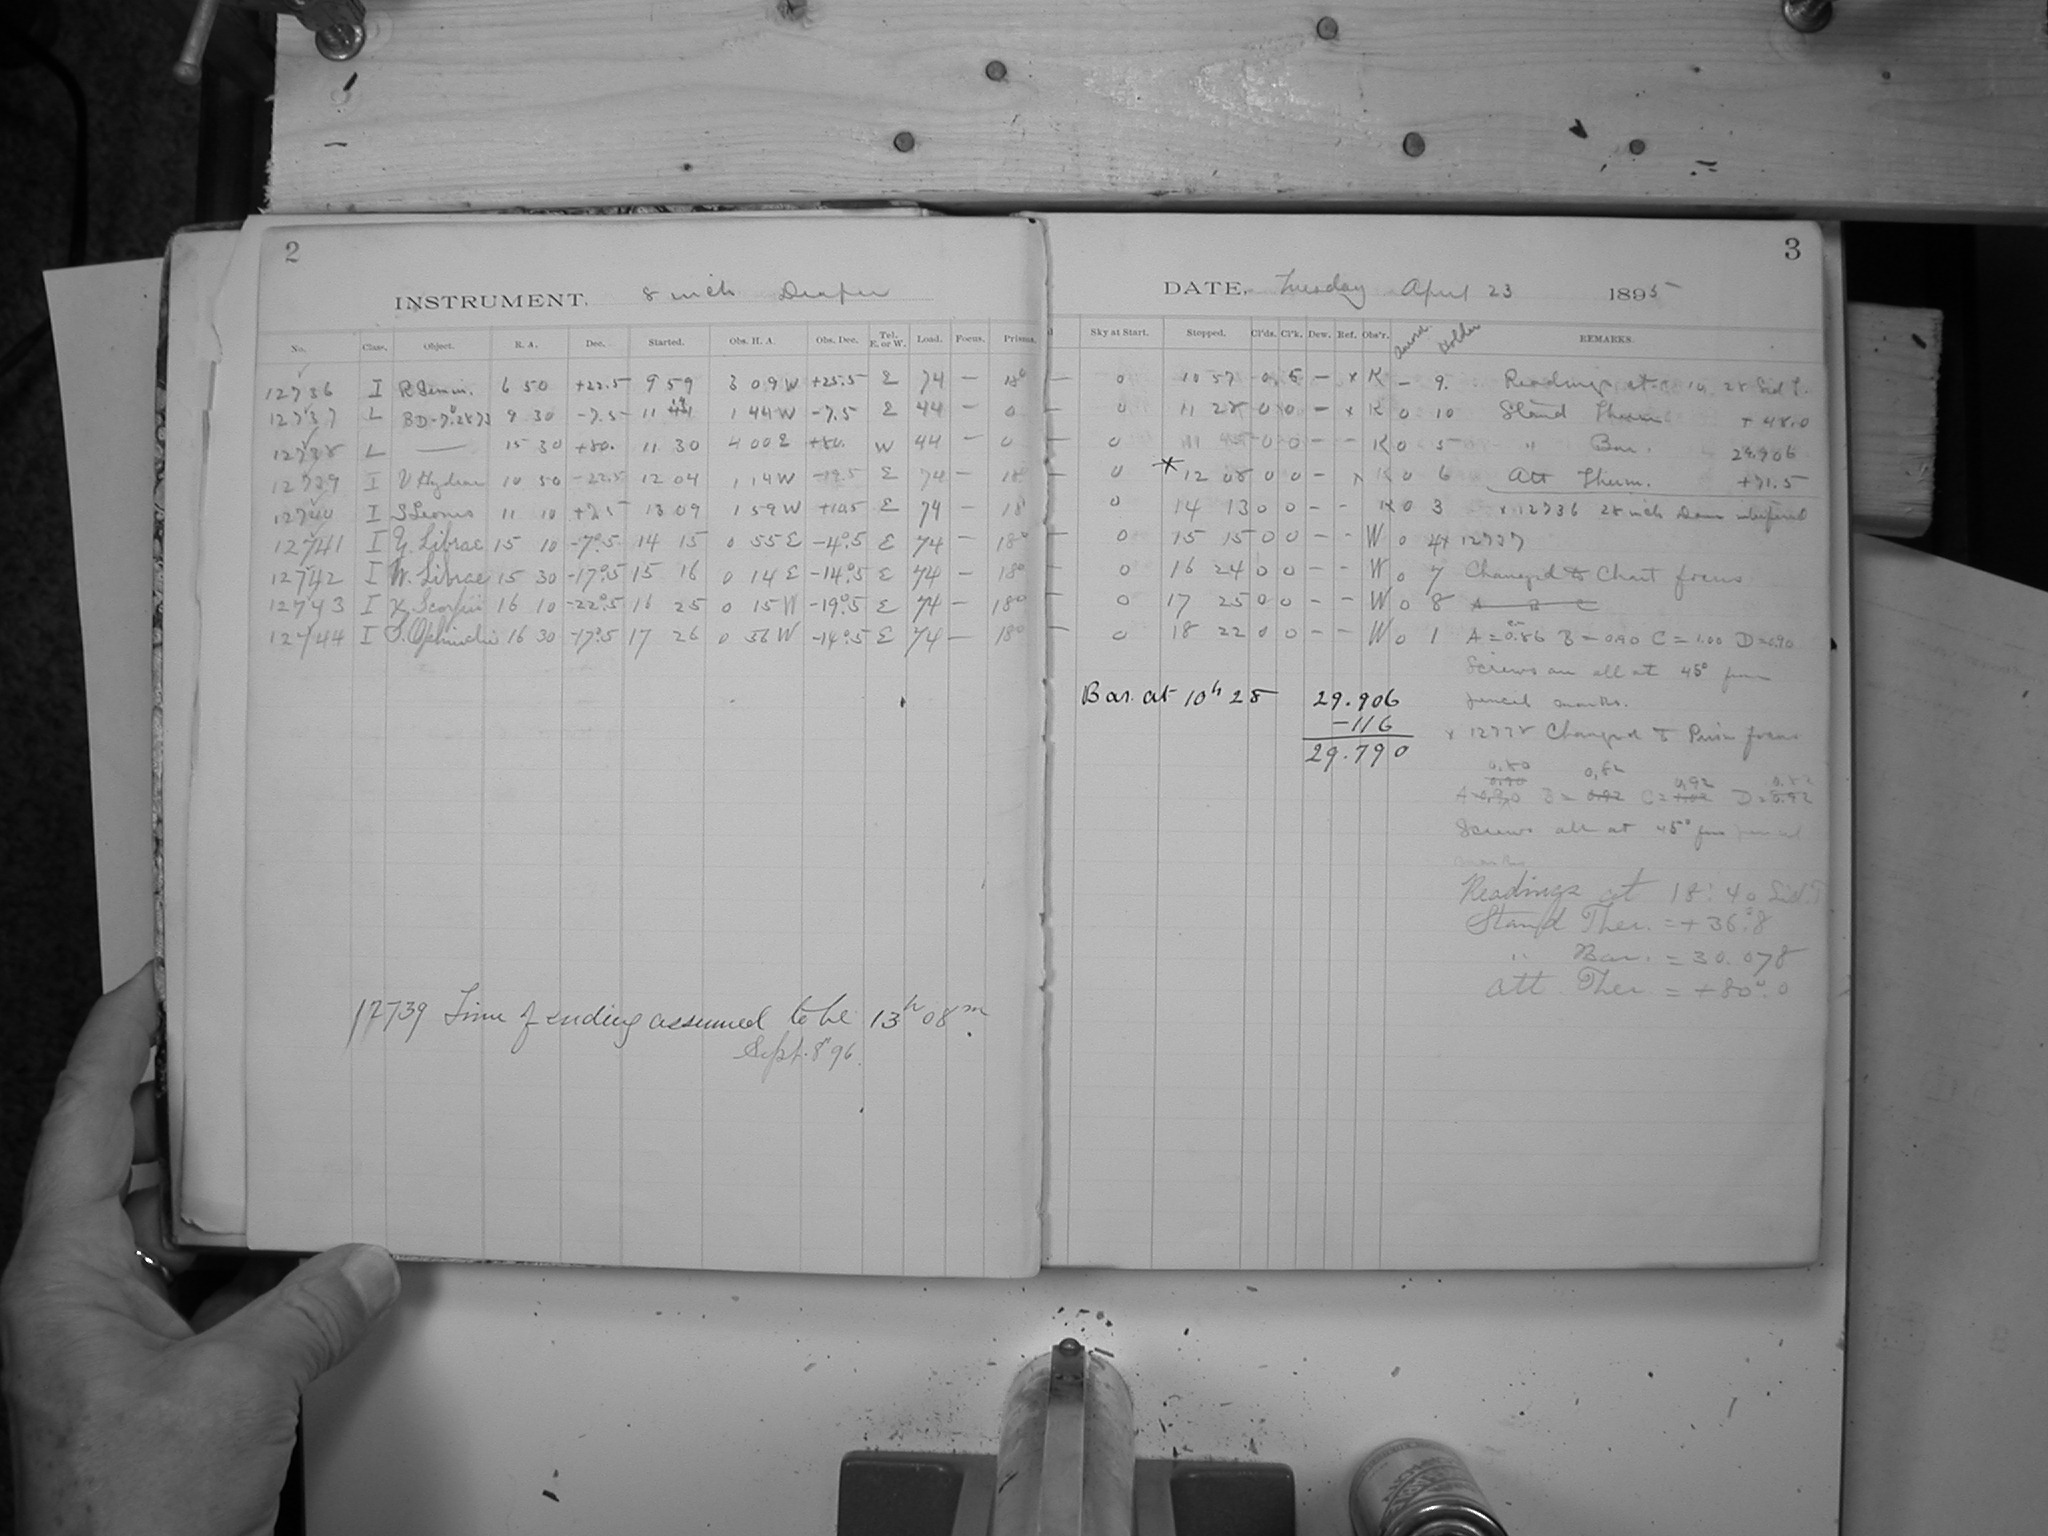 2
INSTRUMENT. 8 inch Draper
No. Class. Object. R. A. Dec. Started. Obs. H. A. Obs. Dec. Tel. E. or W. Load. Focus. Prisms.
12736 I R Gemin. 6 50 +22.5 9 59 3 09 W +25.5 E 74 — 18°
12737 L BD-7°2873 9 30 -7.5 11 1 44 W -7.5 E 44 — 0
12738 L — 15 30 +80. 11 30 4 00 E +80. W 44 — 0
12739 I V Hydrae 10 50 -22.5 12 04 1 14 W -19.5 E 74 — 18°
12740 I S Leonis 11 10 +7.5 13 09 1 59 W +10.5 E 74 — 18
12741 I Y. Librae 15 10 -7°.5 14 15 0 55 E -4°.5 E 74 — 18°
12742 I W. Librae 15 30 -17°.5 15 16 0 14 E -14°.5 E 74 — 18°
12743 I Scorpii 16 10 -22°.5 16 25 0 15 W -19°.5 E 74 — 18°
12744 I Ophiuchi 16 30 -17°.5 17 26 0 56 W -14°.5 E 74 — 18°
12739 Time of ending assumed to be 13h 08m.
Sept. 8" 96.
3
DATE. Tuesday April 23 1895
Sky at Start. Stopped. Cl'ds. Cl'k. Dew. Ref. Obs'r. Holder REMARKS.
— 0 10 57 0 5 — x K — 9. Readings at 10, 28 Sid T.
— 0 11 28 0 0 — x K 0 10 Stand Therm + 48.0
— 0 0 0 — — K 0 5 " Bar. 29.906
— 0 * 12 08 0 0 — x K 0 6 Att Therm. +71.5
— 0 14 13 0 0 — — K 0 3 x 12736 28 inch Dome interfered
— 0 15 15 0 0 — — W 0 4 x 12737
— 0 16 24 0 0 — — W 0 7 Changed to Chart focus
— 0 17 25 0 0 — — W 0 8 A B C
— 0 18 22 0 0 — — W 0 1 A = 0.86 B = 0.90 C = 1.00 D = 0.90
Screws are all at 45° from
pencil marks.
Bar. at 10h 28 29.906
-116
29.790
x 12738 Changed to Prism focus
0.80 0.82 0.92 0.82
A = 0.90 B = 0.92 C = 1.02 D = 0.92
Screws all at 45° from pencil
marks
Readings at 18: 40 Sid. T
Stand Ther. = + 36°.8
" Bar. = 30.078
Att. Ther = + 80°.0